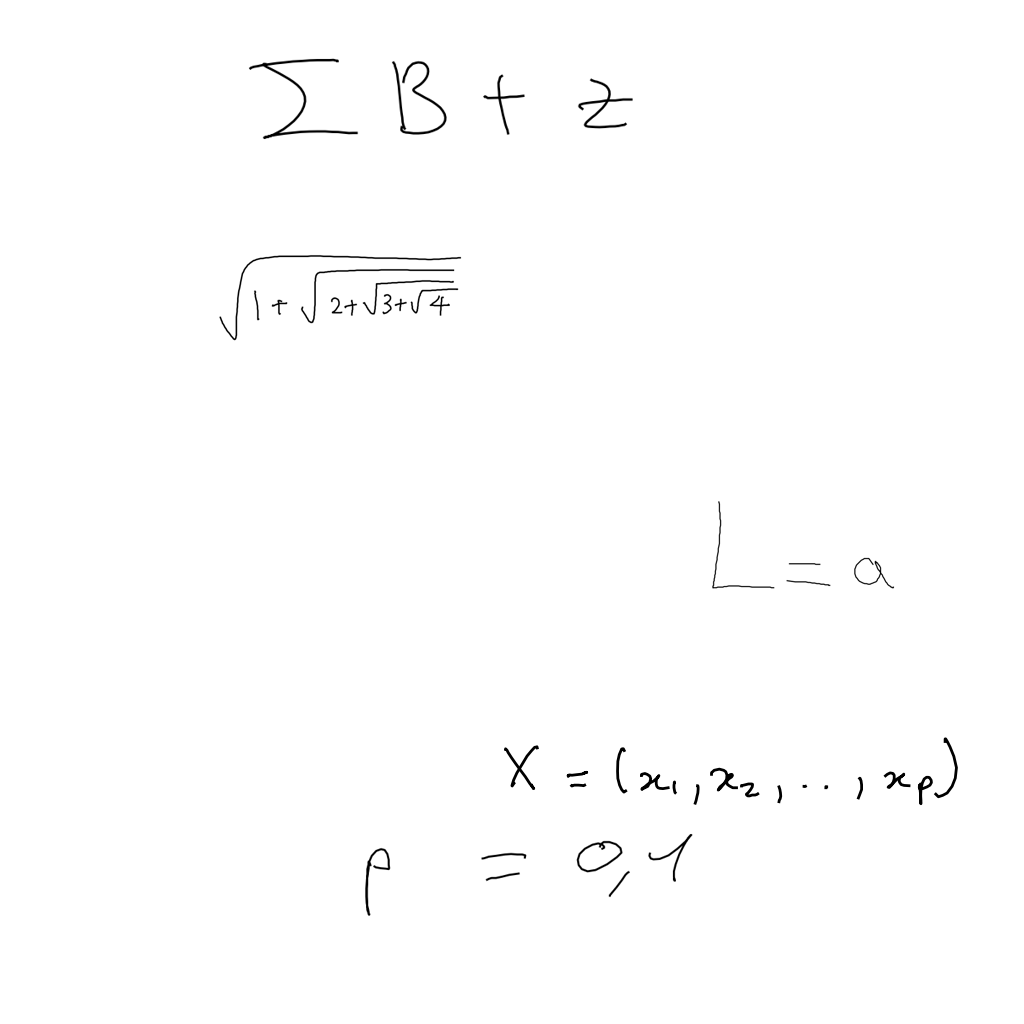 ∑ B + z
√(1+√(2+√(3+√4)))
L = a
X = (x₁, x₂, .., xₚ)
ρ = 0,1